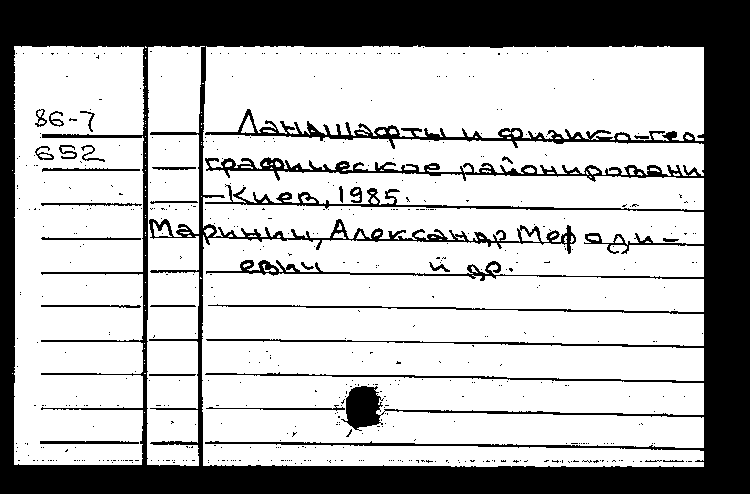 86-7
Ландшафты и физико-гео-
652
графическое районировани
-Киев, 1985.
Маринич, Александр Мефоди-
евич и др.